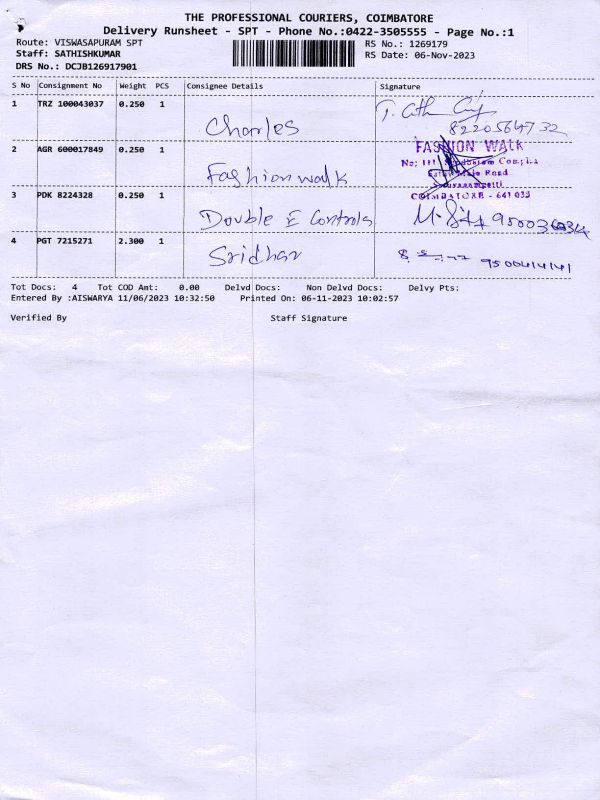 THE PROFESSIONAL COURIERS, COIMBATORE
Delivery Runsheet - SPT - Phone No.:0422-3505555 - Page No.:1
Route: VISWASAPURAM SPT
Staff: SATHISHKUMAR
DRS No.: DCJB126917901
RS No.: 1269179
RS Date: 06-Nov-2023
S No Consignment No Weight PCS Consignee Details Signature
1 TRZ 100043037 0.250 1 Charles
8220564732
2 AGR 600017849 0.250 1 Fashion walk
FASHION WALK
Main Road
COIMBATORE - 641 035
3 PDK 8224328 0.250 1 Double E Controls
4 PGT 7215271 2.300 1 Sridhar
9500414141
Tot Docs: 4 Tot COD Amt: 0.00 Delvd Docs: Non Delvd Docs: Delvy Pts:
Entered By :AISWARYA 11/06/2023 10:32:50 Printed On: 06-11-2023 10:02:57
Verified By Staff Signature